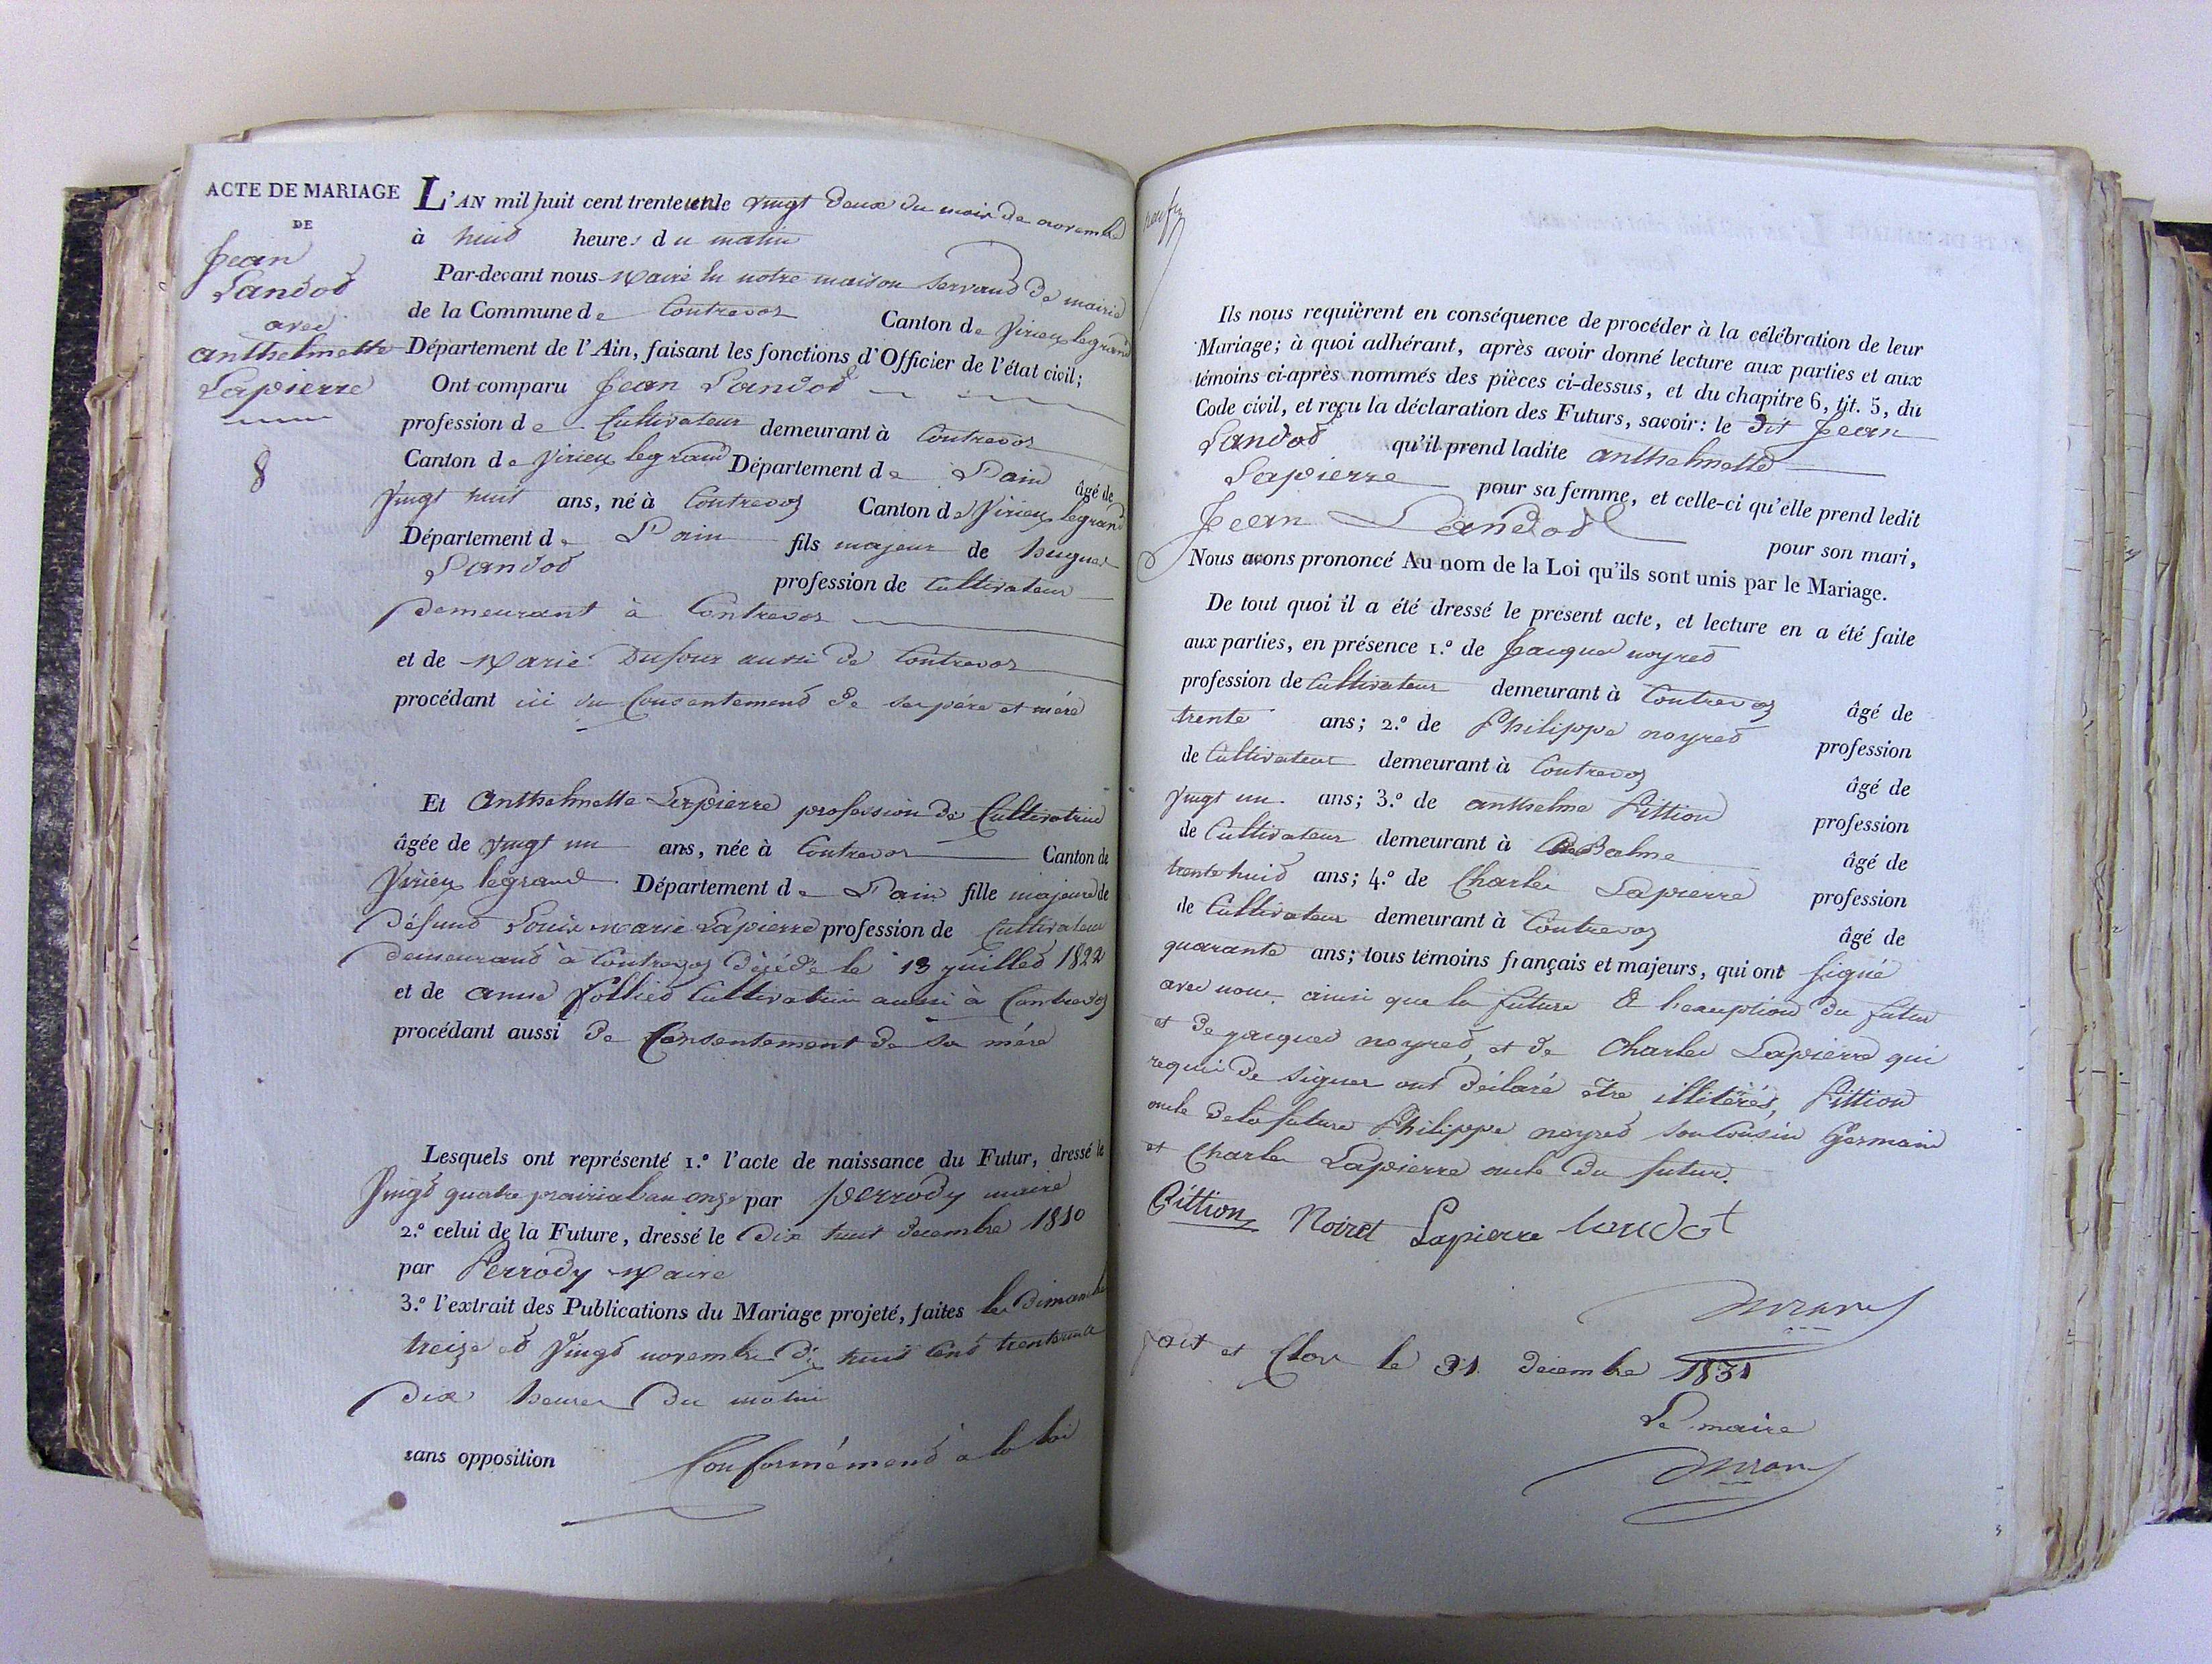 ACTE DE MARIAGE
DE
Jean
Landod
avec
anthelmette
Lapierre
8
L'AN mil huit cent trente un le vingt deux du mois de novembre
à huid heures du matin
Par-devant nous Maire en notre maison servand de mairie
de la Commune de Contrevoz Canton de Virieu legrand
Département de l'Ain, faisant les fonctions d'Officier de l'état civil;
Ont comparu Jean Landod
profession de Cultivateur demeurant à Contrevoz
Canton de Virieu legrand Département de Lain âgé de
vingt huit ans, né à Contrevoz Canton de Virieu legrand
Département de Lain fils majeur de hugues
Landod profession de Cultivateur
demeurant à Contrevoz
et de Marie Dufour aussi de Contrevoz
procédant ici du Consentemend de ses père et mère
Et Anthelmette Lapierre profession de Cultivatrice
âgée de vingt un ans, née à Contrevoz Canton de
Virieu legrand Département de Lain fille majeure de
défund Louis marie Lapierre profession de Cultivateur
demeurand à Contrevoz décédé le 13 juilled 1822
et de anne Vollied Cultivatrice aussi à Contrevoz
procédant aussi de Consentement de sa mère
Lesquels ont représenté 1.º l'acte de naissance du Futur, dressé le
vingd quatre prairial an onze par perrody maire
2.º celui de la Future, dressé le dix huit decembre 1810
par Perrody Maire
3.º l'extrait des Publications du Mariage projeté, faites les Dimanches
treize ed vingd novembre dix huit Cend trente un a
dix heures du matin
sans opposition Conformémend a la loi
Ils nous requièrent en conséquence de procéder à la célébration de leur
Mariage; à quoi adhérant, après avoir donné lecture aux parties et aux
témoins ci-après nommés des pièces ci-dessus, et du chapitre 6, tit. 5, du
Code civil, et reçu la déclaration des Futurs, savoir: le dit Jean
Landod qu'il prend ladite anthelmette
Lapierre pour sa femme, et celle-ci qu'elle prend ledit
Jean Landod pour son mari,
Nous avons prononcé Au nom de la Loi qu'ils sont unis par le Mariage.
De tout quoi il a été dressé le présent acte, et lecture en a été faite
aux parties, en présence 1.º de Jacques noyred
profession de Cultivateur demeurant à Contrevoz âgé de
trente ans; 2.º de Philippe noyred profession
de Cultivateur demeurant à Contrevoz âgé de
vingt un ans; 3.º de anthelme Pittion profession
de Cultivateur demeurant à Balme âgé de
trente huid ans; 4.º de Charles Lapierre profession
de Cultivateur demeurant à Contrevoz âgé de
quarante ans; tous témoins français et majeurs, qui ont signé
avec nous ainsi que la future à l'exception du futur
et de jacques noyred, et de Charles Lapierre qui
requis de signer ont déclaré être illitérés, Pittion
oncle de la future Philippe noyred son Cousin Germain
et Charles Lapierre oncle du futur.
Pittion Noiret Lapierre landot
fait et Clos le 31 decembre 1831
Le maire